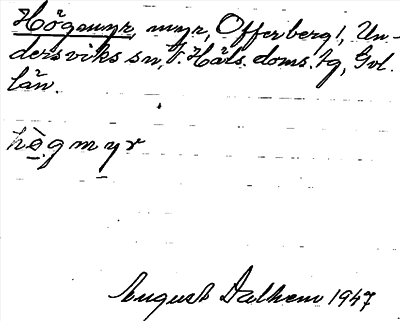 Högmyr, myr, Offerberg!, Un-
dersviks sn, V. Häls. doms. tg, Gvl.
län.
högmyr
August Dalhem 1947